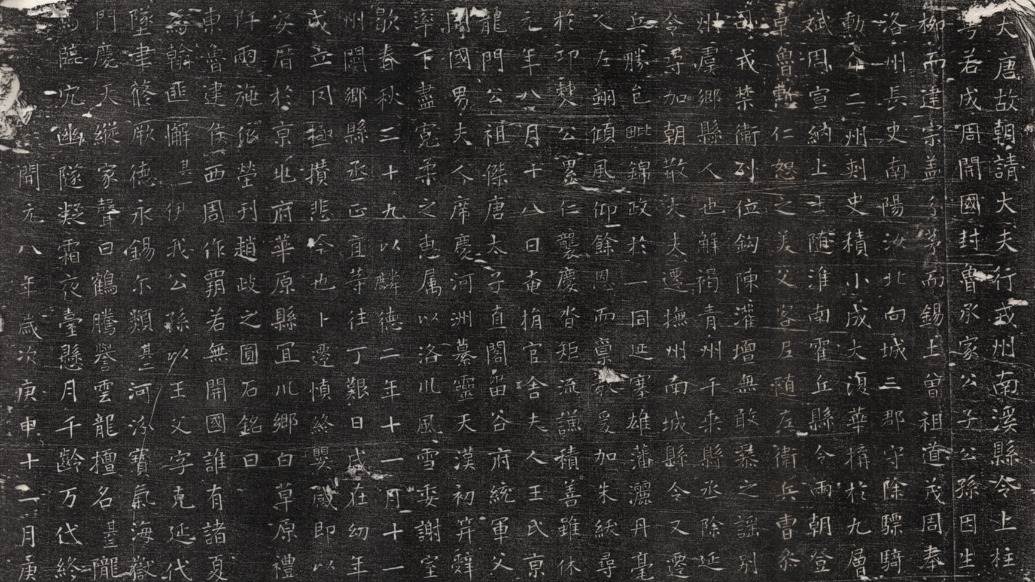 大唐故朝請大夫行戎州南溪縣令上柱
若成周開國封魯承家公子公孫因生
柳而建宗盖分茅而錫土曾祖道茂周奉
洛州長史南陽汝北向城三郡守除驃騎
勳二州刺史積小成大演華構於九層
斌周宣納上士隨淮南霍丘縣令兩朝登
卓魯仁恕之美父客尼随左衛兵曹叅
戎禁衛列位鈎陳濯增無敢慕之謡別
州虞鄉縣人也解褐青州千乘縣丞除延
令尋加朝散大夫遷撫州南城縣令又遷
丘勝邑毗錦政於一同延寨雄藩灑丹毫
父左翊傾風仰餘恩而稟爰加朱紱尋
於邛僰公累仁襲慶沓矩流謙積善雖休
元年八月十八日奄捐官舍夫人王氏京
龍門公祖傑唐太子直閤畨谷府統軍父
開國男夫人席慶河洲摹靈天漢初笄辭
率下盡寛柔之惠属以洛川風雪委謝室
歌春秋三十九以麟德二年十一月十一
州閬鄉縣丞正宜等往丁艱日咸在幼年
成立冈極攢悲今也卜遷慎終嬰感即以
安厝於京兆府華原縣宜川鄉白草原禮
阡雨施依瑩刊趙岐之圓石銘曰
東魯建侯西周作霸若無開國誰有諸夏
為翰匪懈其一伊我公孫以王父字克延代
墜聿脩厥德永錫尔類其二河洛寶氣海嶽
門慶天縱家聲曰鶴騰譽雲龍檀名其三隴
烏蹤穴幽隧凝霜夜臺懸月千齡万代終
開元八年歲次庚申十二月庚